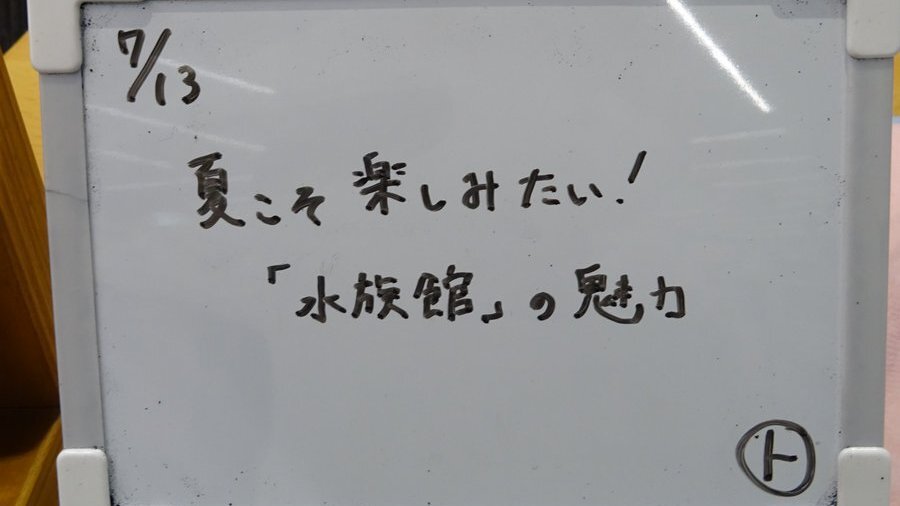 7/13
夏こそ楽しみたい!
「水族館」の魅力
ト